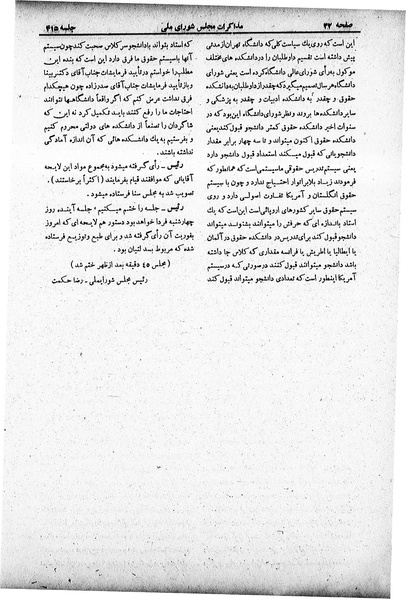 صفحه ۲۲
مذاکرات مجلس شورای ملی
جلسه ۴۱۵
این است که روی یك سیاست کلی که دانشگاه تهران از مدتی
پیش داشته است تقسیم داوطلبان را در دانشکده‌های مختلف
موکول به رأی شورای عالی دانشگاه کرده است یعنی شورای
دانشگاه هر سال تصمیم میگیرد که چقدر از داوطلبان به دانشکده
حقوق و چقدر به دانشکده ادبیات و چقدر به پزشکی و
سایر دانشکده‌ها بروند و نظر شورای دانشگاه این بود که در
سنوات اخیر دانشکده حقوق کمتر دانشجو قبول کند یعنی
دانشکده حقوق اکنون میتواند تا سه چهار برابر مقدار
دانشجویانی که قبول میکند استعداد قبول دانشجو دارد
یعنی سیستم تدریس حقوقی ما سیستمی است که همانطور که
فرمودند زیاد بلابراتوار احتیاج ندارد و چون با سیستم
حقوق انگلستان و آمریکا تفاوت اصولی دارد و روی
سیستم حقوق سایر کشورهای اروپائی است این است که یك
استاد باندازه ای که حرفش را میتوانند بشنوند میتواند
دانشجو قبول کند برای تدریس در دانشکده حقوق در آلمان
یا ایطالیا یا اطریش یا فرانسه مقداری که کلاس جا داشته
باشد دانشجو میتوانند قبول کنند در صورتی که در سیستم
آمریکا اینطور است که تعدادی دانشجو میتواند قبول کند
که استاد بتواند با دانشجو سر کلاس صحبت کند چون سیستم
آنها با سیستم حقوق ما فرق دارد این است که بنده این
مطلب را خواستم در تأیید فرمایشات جناب آقای دکتر بینا
و باز تأیید فرمایشات جناب آقای صدرزاده چون هیچکدام
فرق نداشت عرض کنم که اگر واقعاً دانشگاهها نتوانند
احتاجات ما را رفع کنند باید تکمیل کرد نه این که
شاگردان را تصنعاً از دانشکده های دولتی محروم کنیم
و بفرستیم به یك دانشکده هائی که آن اندازه آمادگی
نداشته باشند.
رئیس ـ رأی گرفته میشود به مجموع مواد این لایحه
آقایانی که موافقند قیام بفرمایند (اکثراً برخاستند).
تصویب شد به مجلس سنا فرستاده میشود.
رئیس ـ جلسه را ختم میکنیم ، جلسه آینده روز
چهارشنبه فردا خواهد بود دستور هم لایحه ای که امروز
بفوریت آن رأی گرفته شد و برای طبع و توزیع فرستاده
شده که مربوط به لتیان بود.
(مجلس ۴۵ دقیقه بعد از ظهر ختم شد)
رئیس مجلس شورایملی ـ رضا حکمت